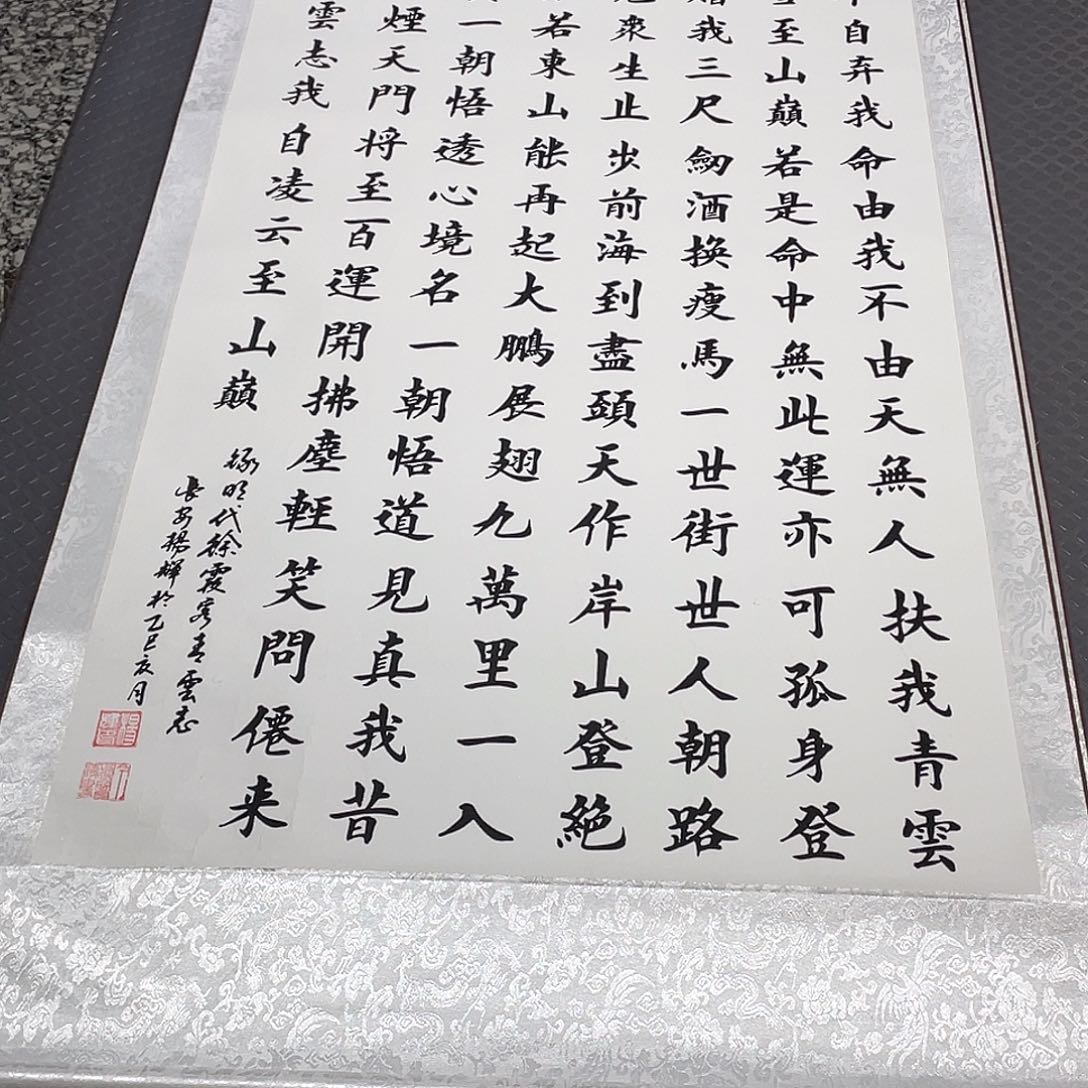 自弃我命由我不由天無人扶我青雲
至山巔若是命中無此運亦可孤身登
我三尺劒酒換瘦馬一世街世人朝路
衆生止步前海到盡頭天作岸山登絕
若東山能再起大鵬展翅九萬里一入
一朝悟透心境名一朝悟道見真我昔
煙天門将至百運開拂塵輕笑問僊来
雲志我自凌云至山巔
錄明代徐霞客青雲志
長安楊輝於乙巳亥月